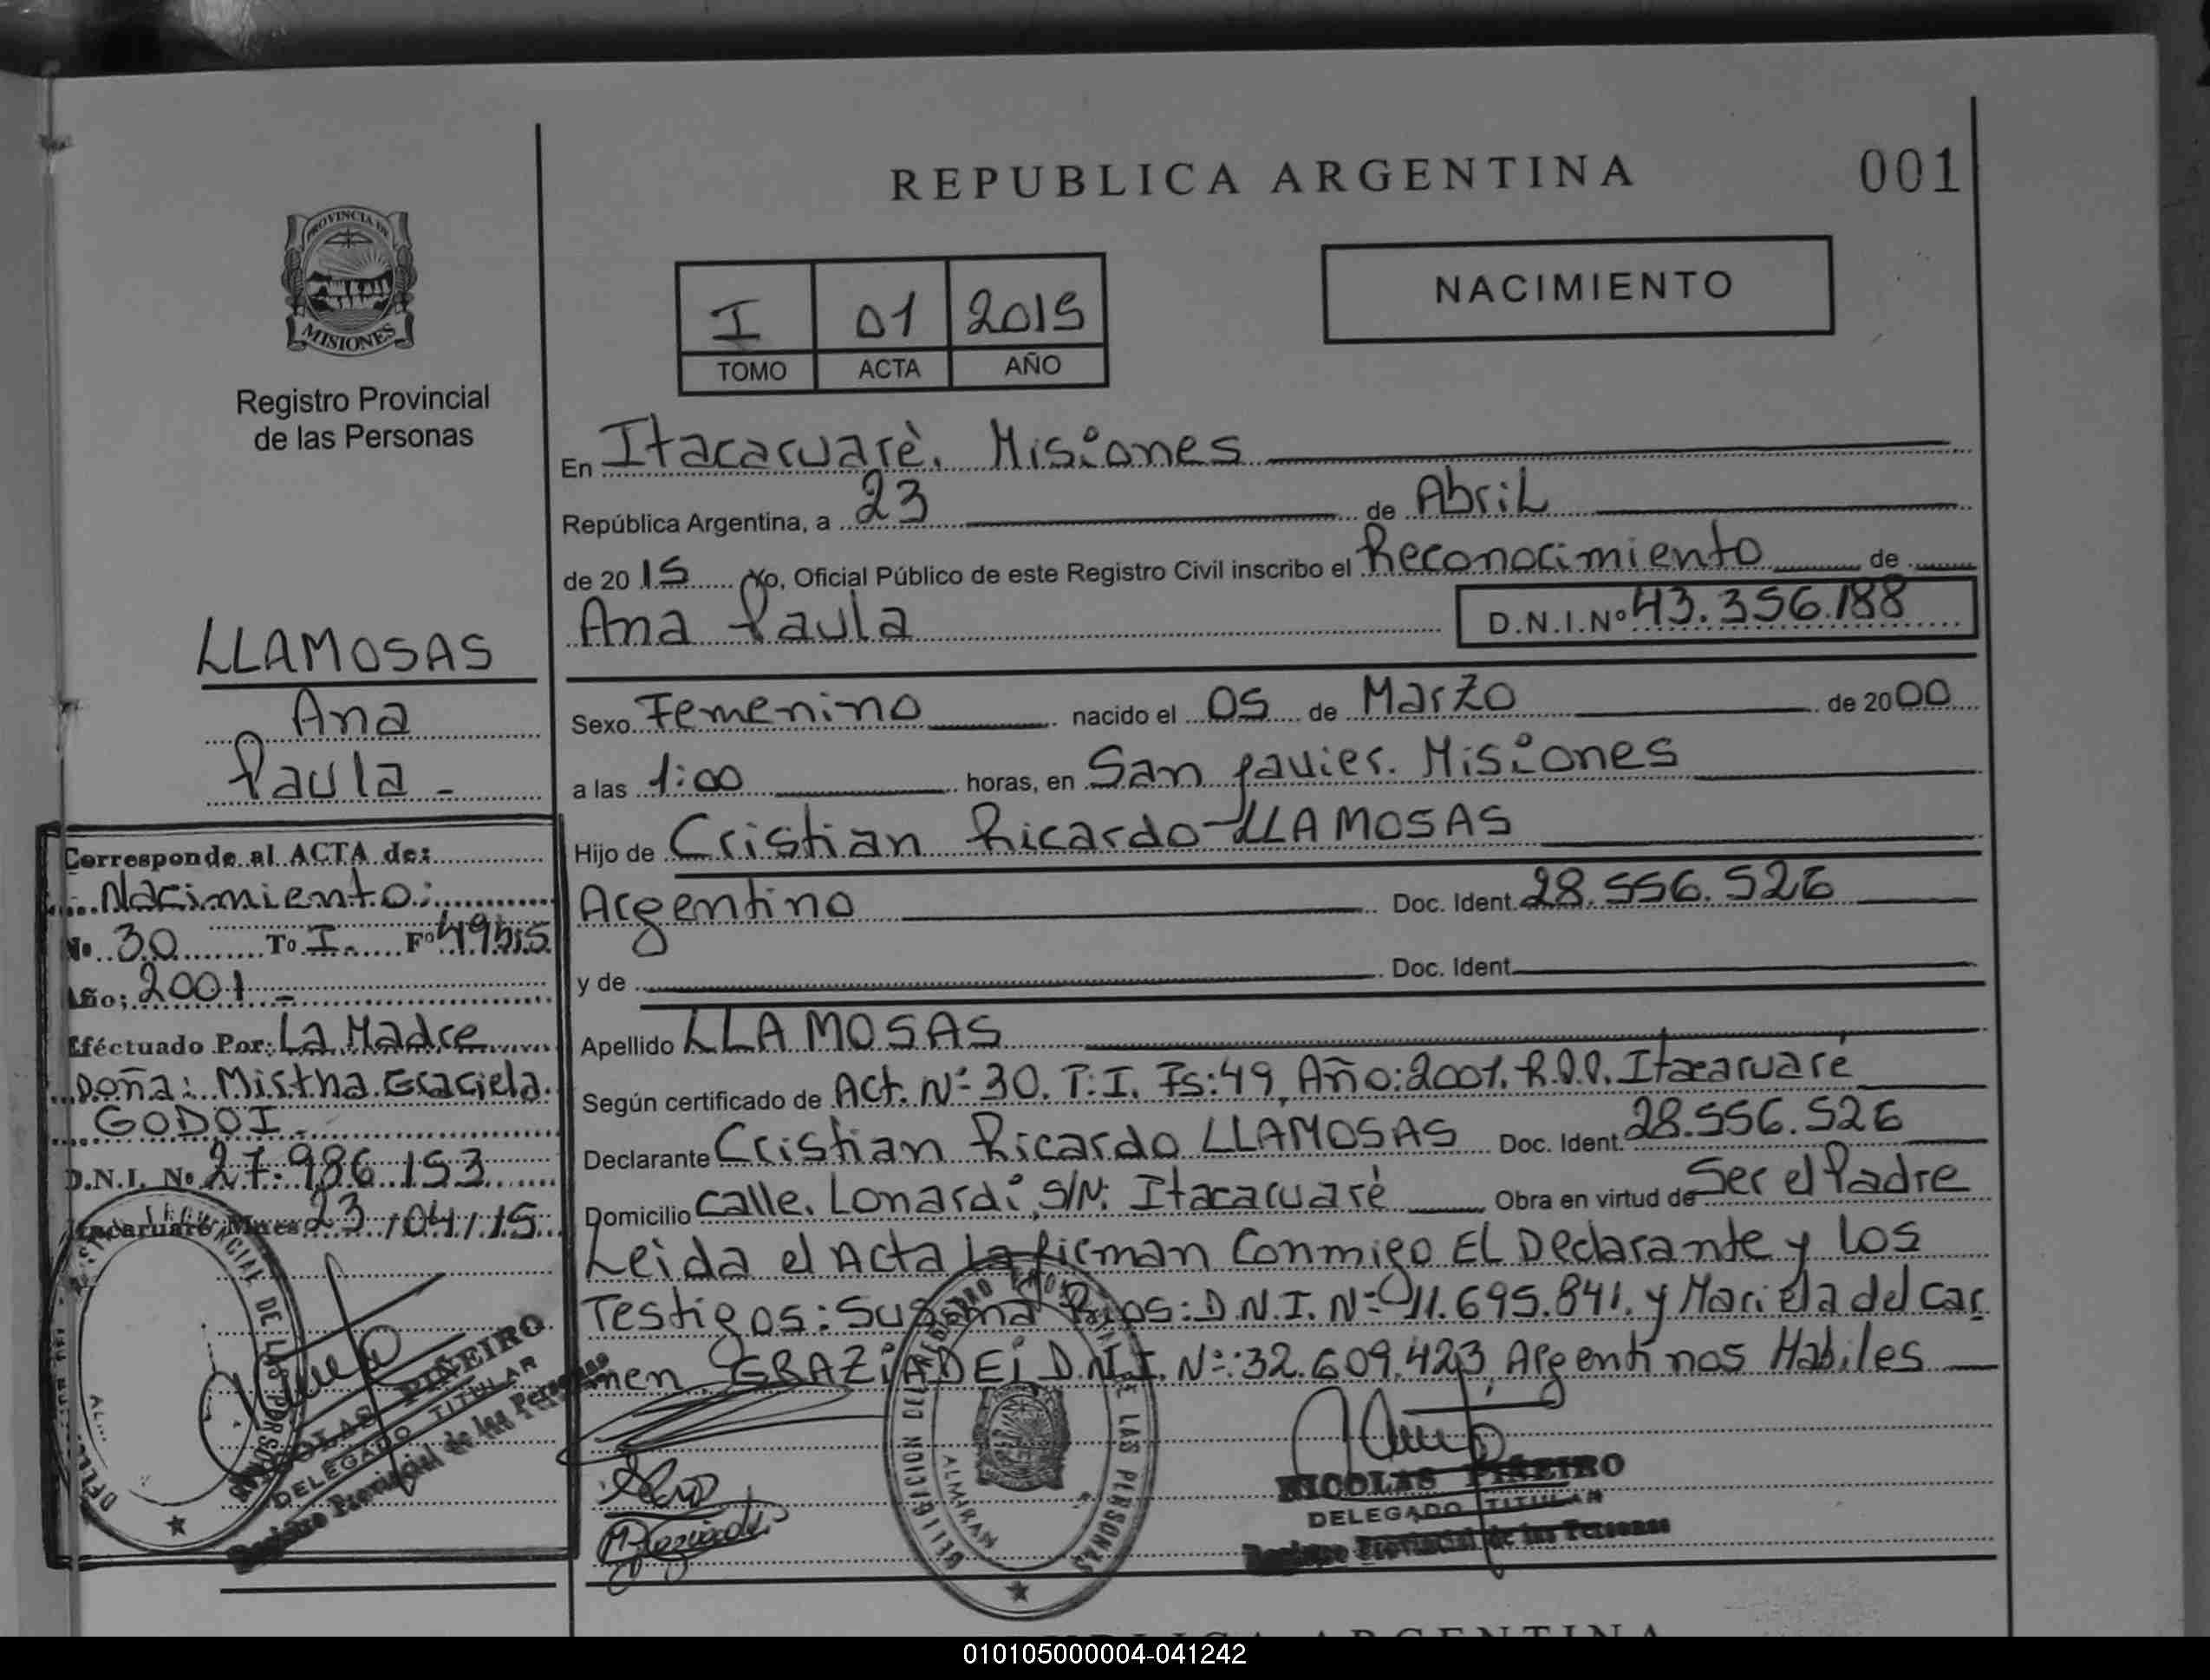 REPUBLICA ARGENTINA
001
PROVINCIA DE
MISIONES
Registro Provincial
de las Personas
I 01 2015
TOMO ACTA AÑO
NACIMIENTO
En Itacaruarè, Misiones
República Argentina, a 23 de Abril
de 2015 Yo, Oficial Público de este Registro Civil inscribo el Reconocimiento de
Ana Paula D.N.I.Nº 43.356.188
Sexo Femenino nacido el 05 de Marzo de 2000
a las 1:00 horas, en San Javier. Misiones
Hijo de Cristian Ricardo LLAMOSAS
Argentino Doc. Ident. 28.556.526
y de Doc. Ident.
Apellido LLAMOSAS
Según certificado de Act. Nº 30. T:I. Fs:49, Año:2001. R.P.P. Itacaruaré
Declarante Cristian Ricardo LLAMOSAS Doc. Ident. 28.556.526
Domicilio Calle. Lonardi S/N: Itacaruaré Obra en virtud de Ser el Padre
Leida el Acta la firman Conmigo El Declarante y Los
Testigos: Susana Rios: D.N.I. Nº 11.695.841. y Mariela del Car
men GRAZIADEI D.N.I. Nº:32.609.423, Argentinos Habiles
LLAMOSAS
Ana
Paula -
Corresponde al ACTA de:
Nacimiento:
Nº 30 Tº I. Fº 49
Año: 2001 -
Eféctuado Por: La Madre
Doña: Mistha Graciela
GODOI
D.N.I. Nº 27.986.153
Itacaruaré Mnes 23/04/15
NICOLAS PIÑEIRO
DELEGADO TITULAR
Registro Provincial de las Personas
NICOLAS PIÑEIRO
DELEGADO TITULAR
Registro Provincial de las Personas
REPUBLICA ARGENTINA
010105000004-041242